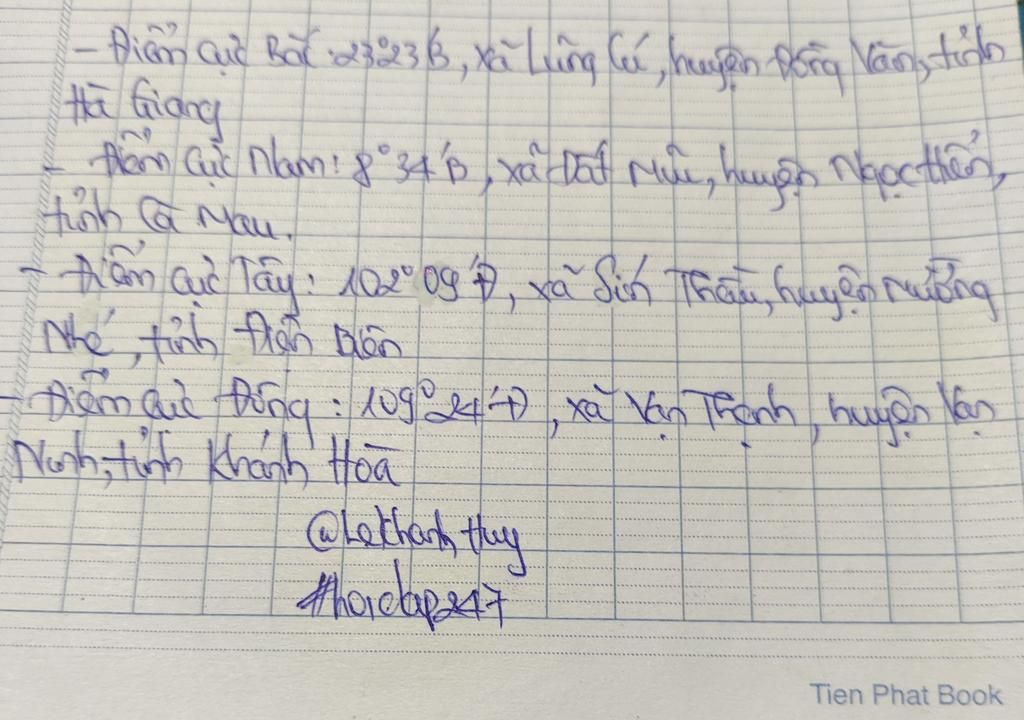 - Điểm cực Bắc: 23°23'B, xã Lũng Cú, huyện Đồng Văn, tỉnh
Hà Giang
- Điểm cực Nam: 8°34'B, xã Đất Mũi, huyện Ngọc Hiển,
tỉnh Cà Mau.
- Điểm cực Tây: 102°09'Đ, xã Sín Thầu, huyện Mường
Nhé, tỉnh Điện Biên
- Điểm cực Đông: 109°24'Đ, xã Vạn Thạnh, huyện Vạn
Ninh, tỉnh Khánh Hoà
@LeKhanhHuy
#hoidap247
Tien Phat Book